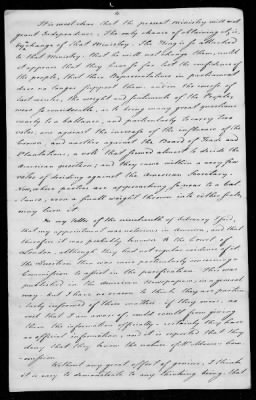 4
It is most clear that the present Ministry will not
grant Independence. The only chance of obtaining it is,
Exchange of that Ministry. The King is so attached
to that Ministry, that he will not change them, until
it appears that they have so far lost the confidence of
the people, that their Representatives in parliament
dare no longer support them, and in the course of
last winter, the weight and sentiments of the People,
were so considerable, as to bring many great questions
nearly to a ballance, and particularly to carry two
votes, one against the increase of the influence of the
Crown, and another against the Board of Trade and
Plantations, a vote that seemed almost to decide the
American question; and they came within a very few
votes of deciding against the American Secretary.
Now, where parties are approaching so near to a bal-
lance, even a small weight thrown into either scale,
may turn it.
In my letter of the nineteenth of
that my appointment was notorious in America, and that
therefore it was probably known to the Court of
London, although they had not regular evidence of it.
the Question then was more particularly concerning a
Commission to assist in the pacification. This was
published in the American Newspapers, in a general
way, but I have no reason to think they are particu-
larly informed of these matters. if they were, no
evil that I am aware of, could result from giving
them the information officially. certainly they have
no official information, and it is reported that they
deny that they know the nature of Mr. Adams's Com-
mission.
Without any great effort of genius, I think
it is easy to demonstrate to any thinking being, that